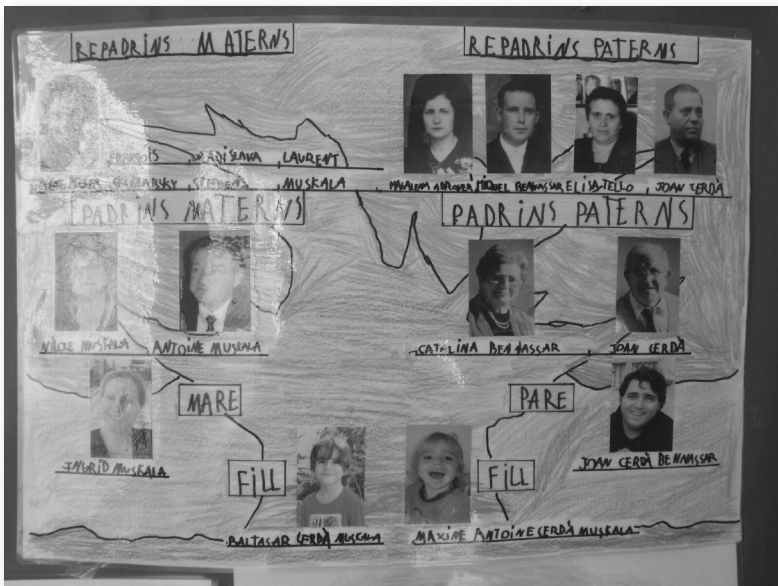 REPADRINS MATERNS
REPADRINS PATERNS
LADISLAVA LAURENT
STEPHENS MUSKALA
MAGALENA ADROVER, MIQUEL BENNASSAR, ELISA TELLO, JOAN CERDÀ
PADRINS MATERNS
PADRINS PATERNS
NICOLE MUSKALA ANTOINE MUSKALA
CATALINA BENNASSAR JOAN CERDÀ
MARE
PARE
INGRID MUSKALA
JOAN CERDÀ BENNASSAR
FILL
FILL
BALTASAR CERDÀ MUSKALA
MAXIME ANTOINE CERDÀ MUSKALA